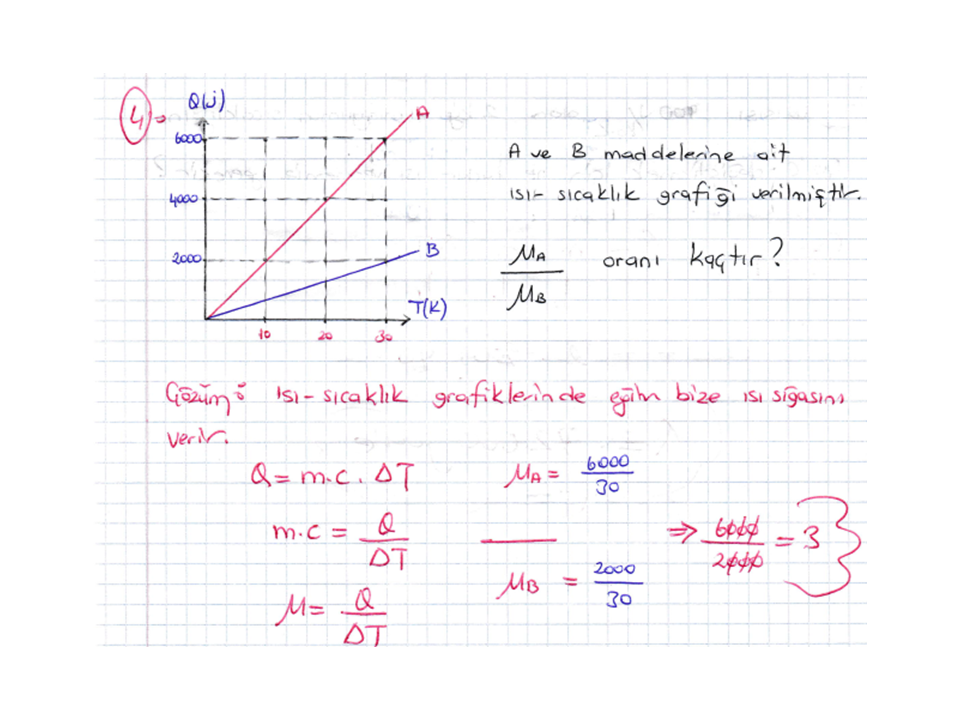 4)
Q(J)
6000
4000
2000
A
B
T(K)
10 20 30
A ve B maddelerine ait
ısı- sıcaklık grafiği verilmiştir.
MA
MB
oranı kaçtır?
Çözüm: Isı-sıcaklık grafiklerinde eğim bize ısı sığasını
verir.
Q = m.c. ΔT
m.c = Q / ΔT
M = Q / ΔT
MA = 6000 / 30
MB = 2000 / 30
⇒ 6000 / 2000 = 3